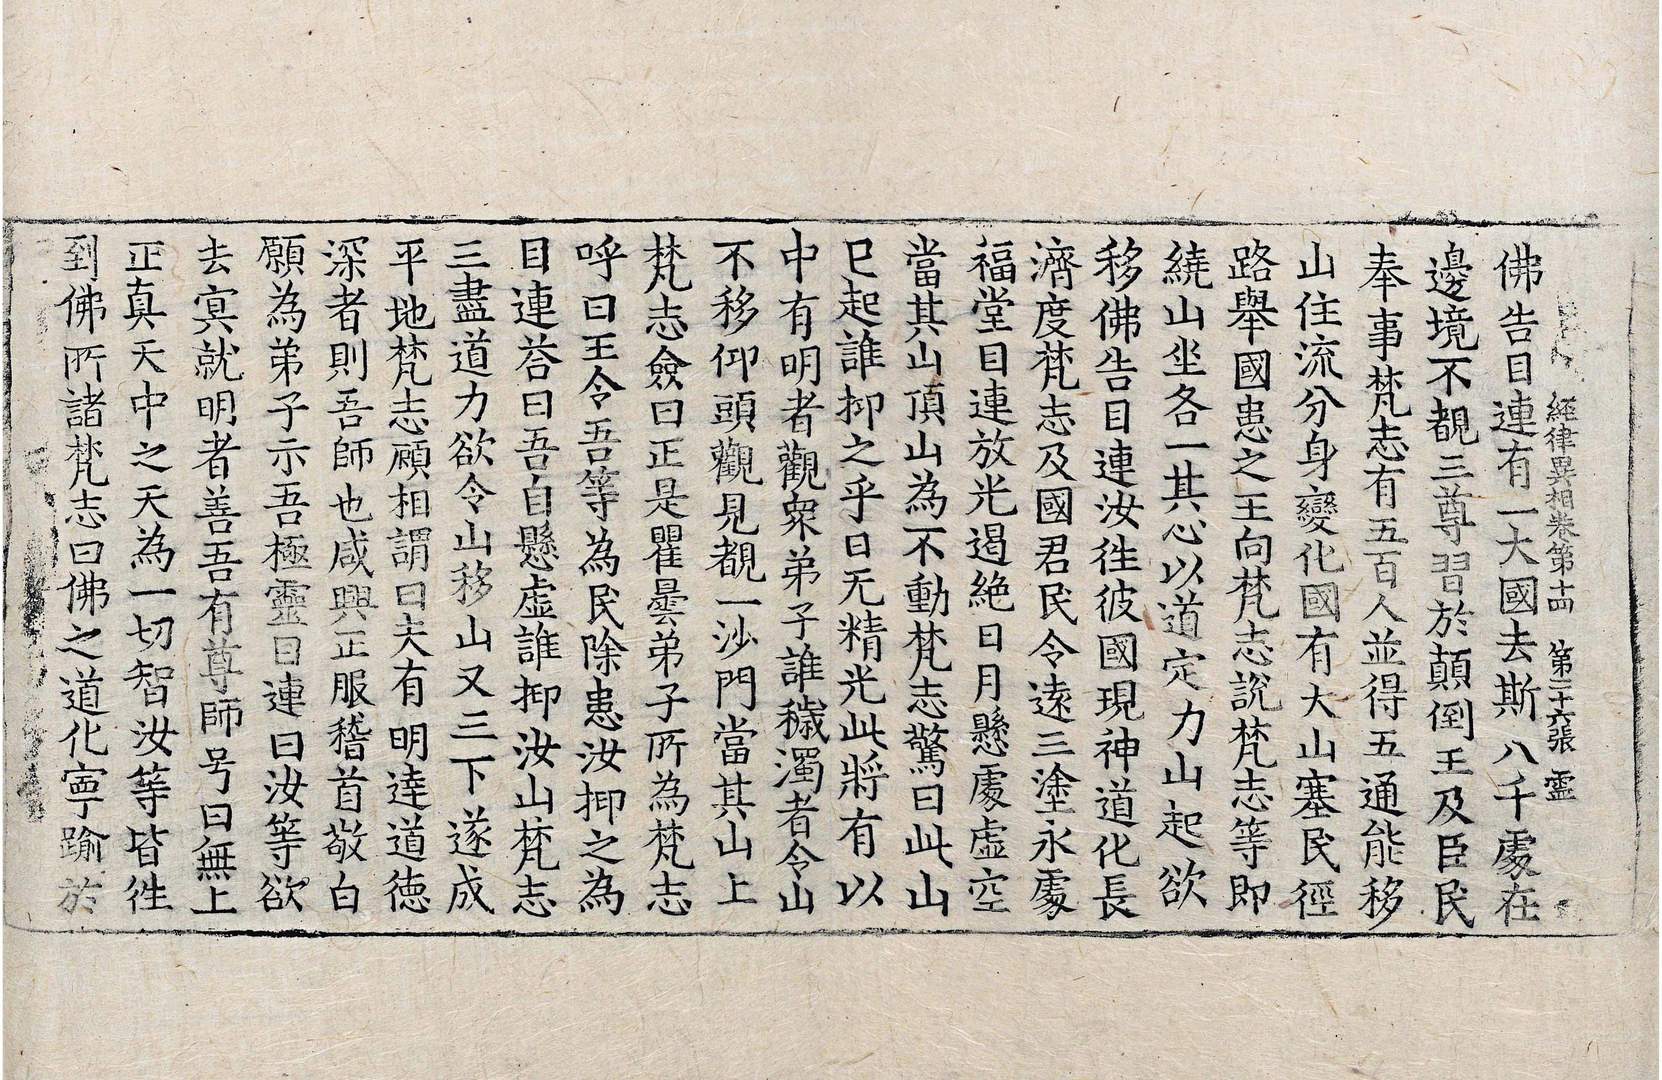 經律異相卷第十四 第二十六張 霊
佛告目連有一大國去斯八千處在
邊境不覩三尊習於顛倒王及臣民
奉事梵志有五百人並得五通能移
山住流分身變化國有大山塞民徑
路舉國患之王向梵志說梵志等即
繞山坐各一其心以道定力山起欲
移佛告目連汝徃彼國現神道化長
濟度梵志及國君民令遠三塗永處
福堂目連放光遏絶日月懸處虛空
當其山頂山為不動梵志驚曰此山
已起誰抑之乎日无精光此將有以
中有明者觀衆弟子誰穢濁者令山
不移仰頭觀見覩一沙門當其山上
梵志僉曰正是瞿曇弟子所為梵志
呼曰王令吾等為民除患汝抑之為
目連荅曰吾自懸虛誰抑汝山梵志
三盡道力欲令山移山又三下遂成
平地梵志顧相謂曰夫有明達道德
深者則吾師也咸興正服稽首敬白
願為弟子示吾極靈目連曰汝等欲
去㝠就明者善吾有尊師号曰無上
正真天中之天為一切智汝等皆徃
到佛所諸梵志曰佛之道化寧踰於